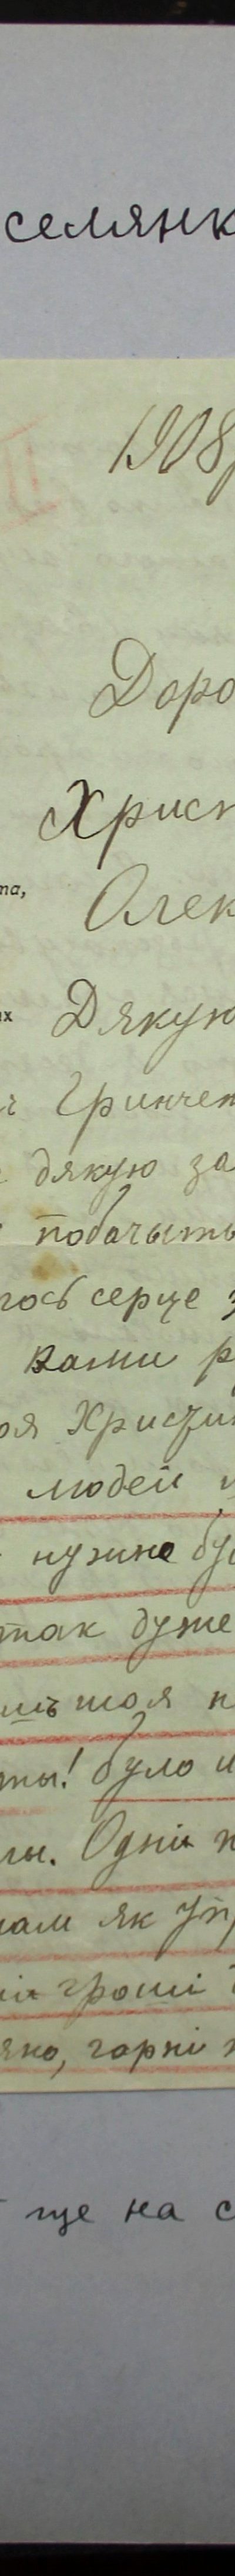 селянк
1908
Доро
Христ
та,
Олек
их
Дякую
Гринчен
дякую за
побачыть
гось серце з
вами р
оя Христин
людей
нужно бу
так дуже
шъ тоя н
ты! було и
лы. Одни н
нам як
гроши
яно, гарни
ще на с